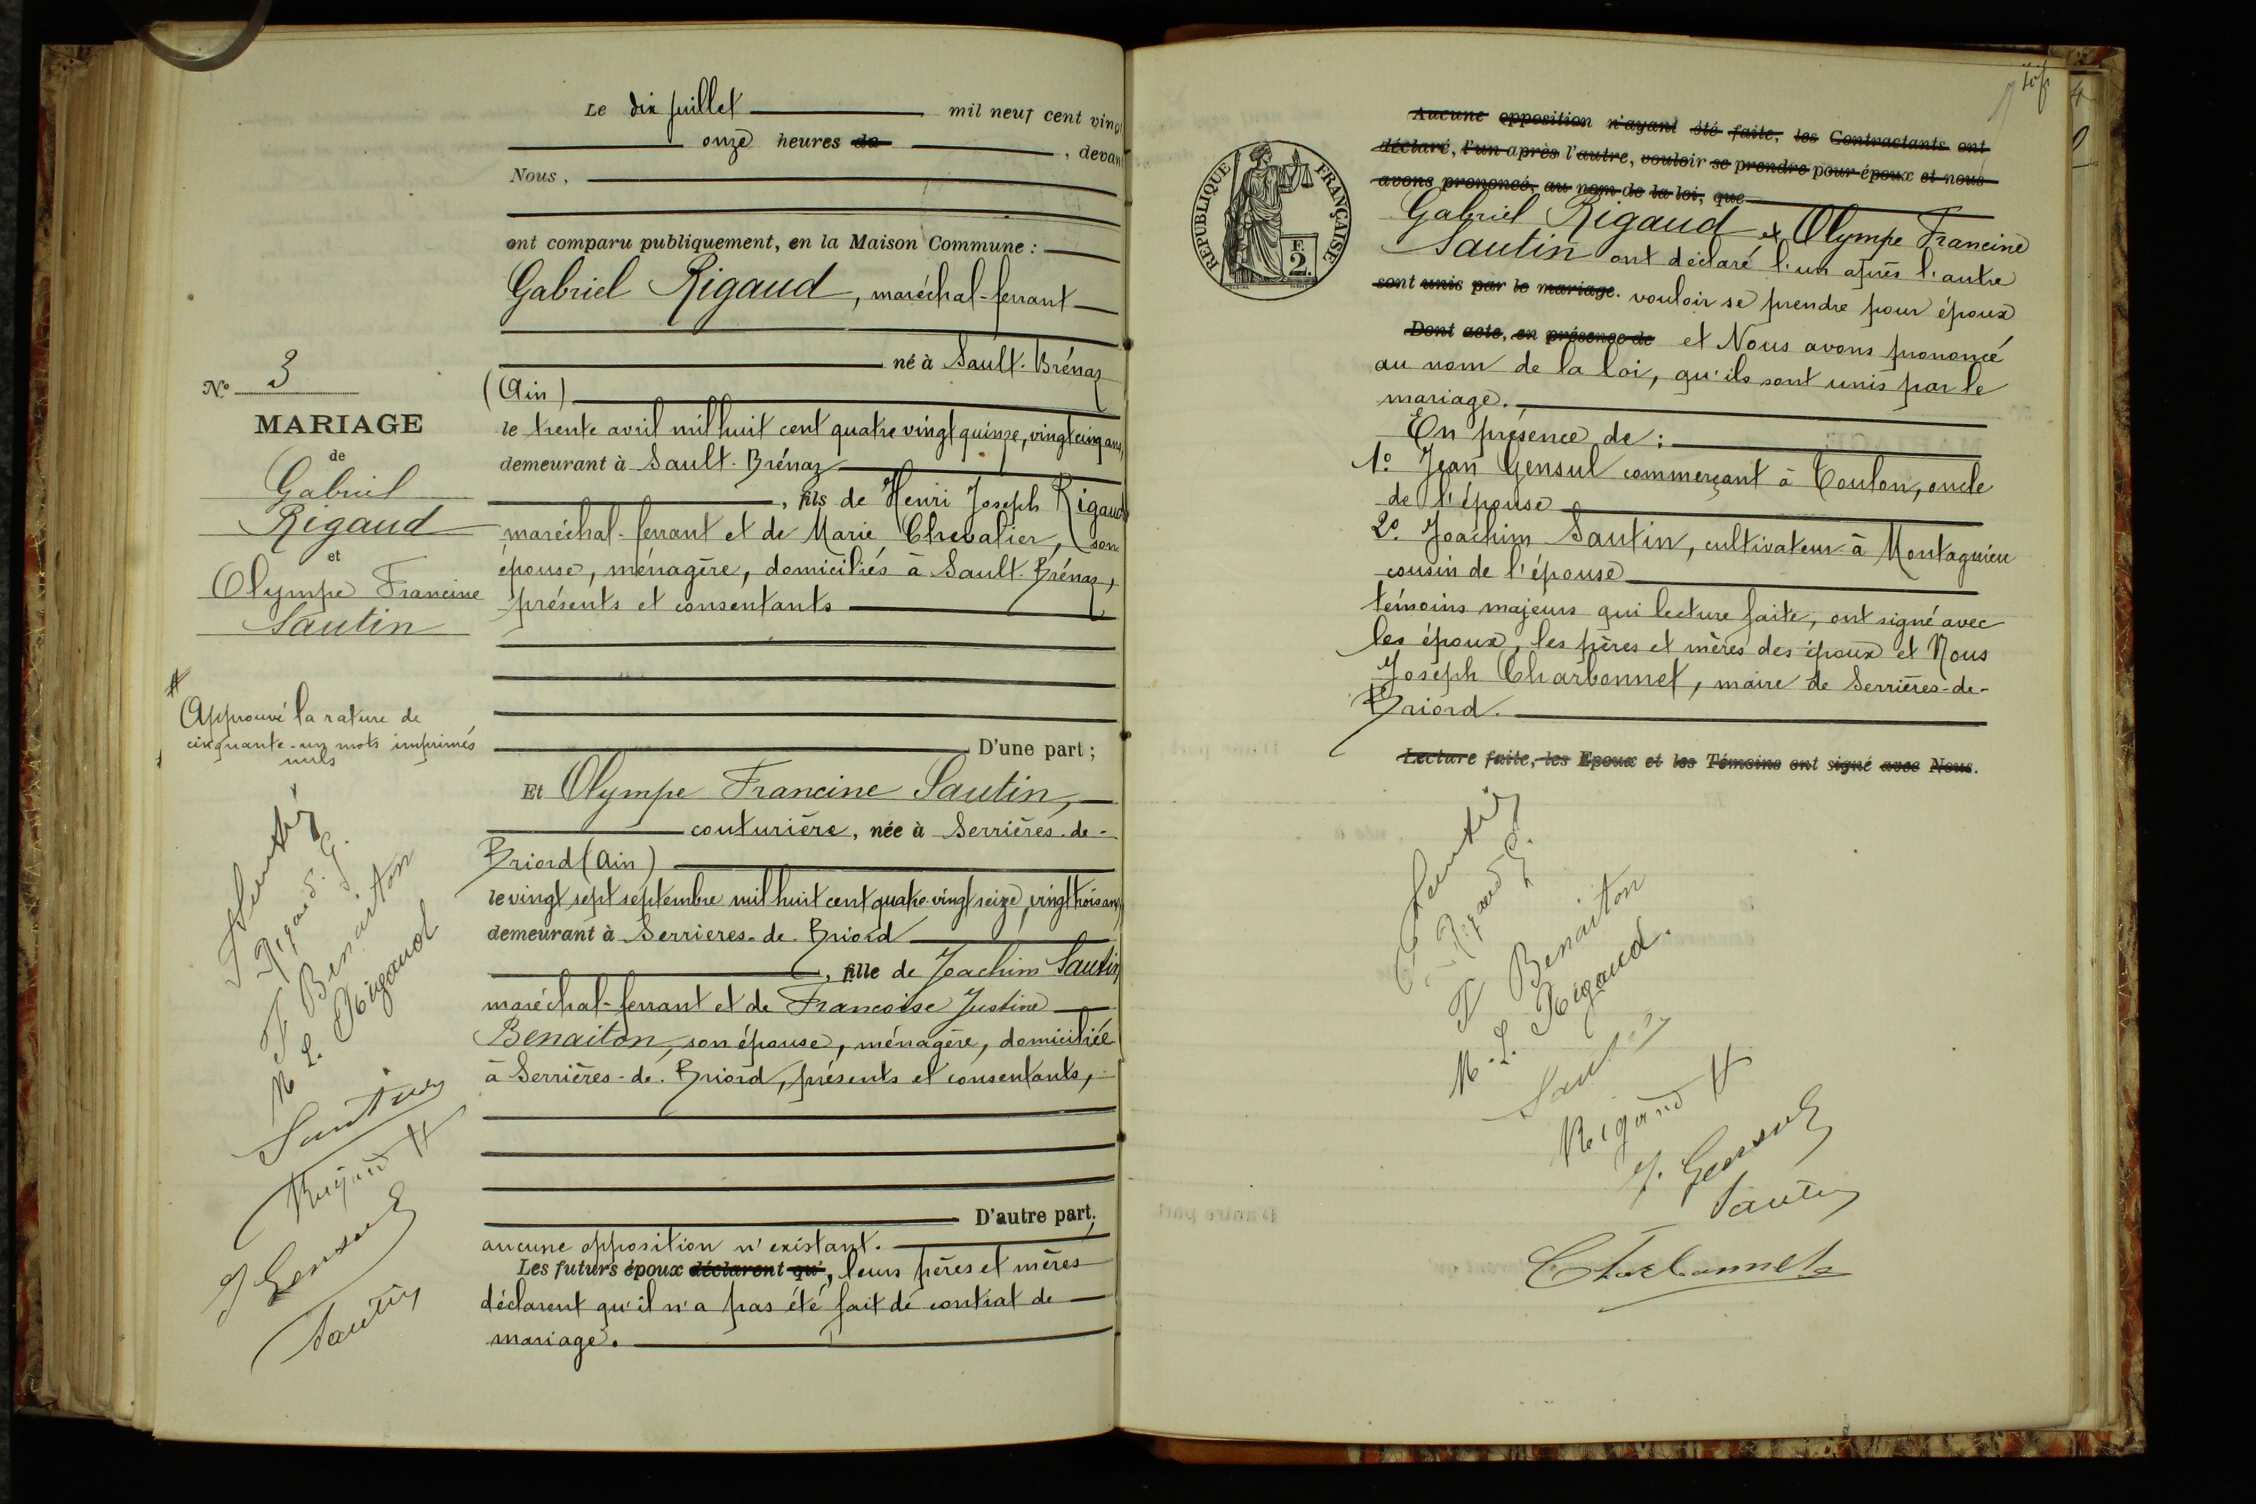 Le dix juillet mil neuf cent vingt
onze heures de , devant
Nous,
ont comparu publiquement, en la Maison Commune :
Gabriel Rigaud, maréchal-ferrant
né à Sault-Brénaz
(Ain)
le trente avril mil huit cent quatre vingt quinze, vingt cinq ans,
demeurant à Sault-Brénaz
, fils de Henri Joseph Rigaud
maréchal-ferrant et de Marie Chevalier, son
épouse, ménagère, domiciliés à Sault-Brénaz,
présents et consentants
D'une part ;
Et Olympe Francine Sautin,
couturière, née à Serrières-de-
Briord (Ain)
le vingt sept septembre mil huit cent quatre-vingt seize, vingt trois ans,
demeurant à Serrieres-de-Briord
, fille de Joachim Sautin
maréchal-ferrant et de Francoise Justine
Benaiton, son épouse, ménagère, domiciliée
à Serrières-de-Briord, présents et consentants,
D'autre part,
aucune opposition n'existant.
Les futurs époux déclarent qu', leurs pères et mères
déclarent qu'il n'a pas été fait de contrat de
mariage.
N° 3
MARIAGE
de
Gabriel
Rigaud
et
Olympe Francine
Sautin
Approuvé la rature de
cinquante-un mots imprimés
nuls
Sautin
Rigaud. G.
F Benaiton
M L. Rigaud
Sautin
Rigaud H
J Gensul
Sautin
RÉPUBLIQUE FRANÇAISE
F.
2.
Aucune opposition n'ayant été faite, les Contractants ont
déclaré, l'un après l'autre, vouloir se prendre pour époux et nous
avons prononcé, au nom de la loi, que
Gabriel Rigaud et Olympe Francine
Sautin ont déclaré l'un après l'autre
sont unis par le mariage. vouloir se prendre pour époux
Dont acte, en présence de et Nous avons prononcé
au nom de la loi, qu'ils sont unis par le
mariage.
En présence de :
1° Jean Gensul commerçant à Toulon, oncle
de l'épouse
2° Joachim Sautin, cultivateur à Montagnieu
cousin de l'épouse
témoins majeurs qui lecture faite, ont signé avec
les époux, les pères et mères des époux et Nous
Joseph Charbonnet, maire de Serrières-de-
Briord.
Lecture faite, les Epoux et les Témoins ont signé avec Nous.
Sautin
Rigaud G.
F Benaiton
M. L. Rigaud.
Sautin
Rigaud H
J. Gensul
Sautin
Charbonnet